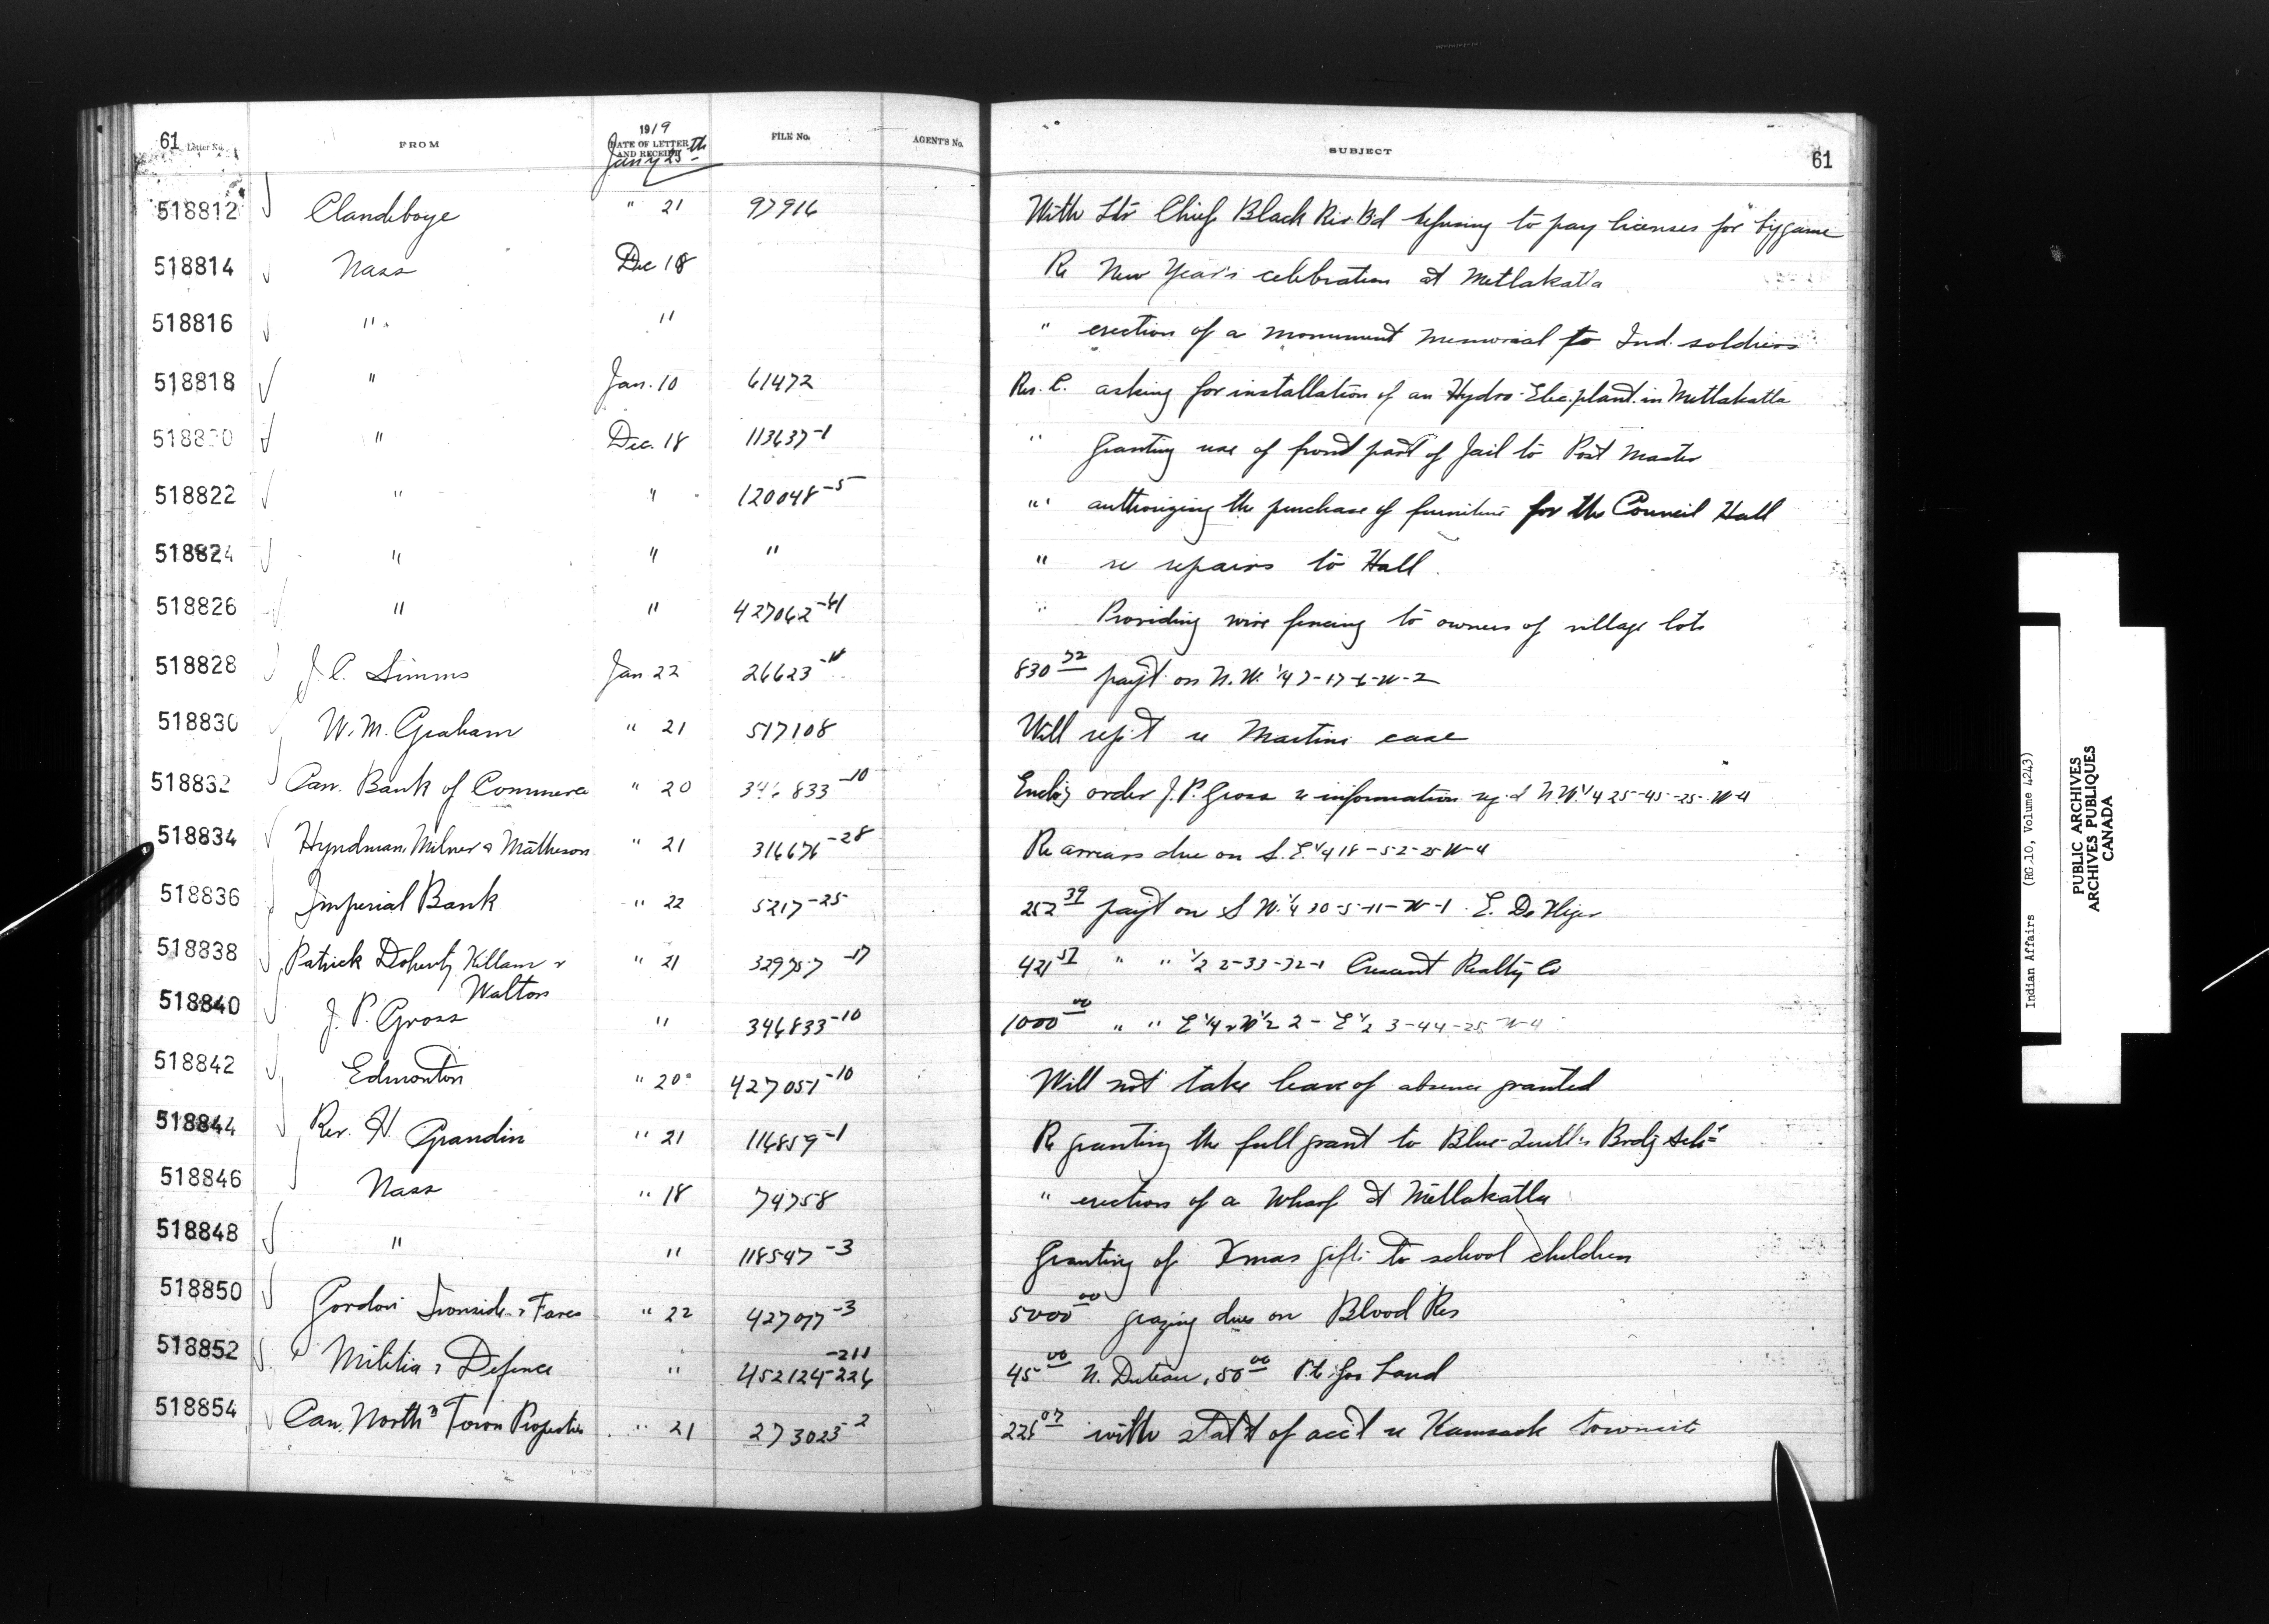 61 Letter No. FROM 1919 DATE OF LETTER AND RECEIPT FILE No. AGENT'S No. SUBJECT 61
Jany 25th
518812 Clandeboye " 21 97916 With Ltr Chief Black Riv. Bd refusing to pay licenses for big game
518814 Nass Dec 18 Re New Year's celebration at Metlakatla
518816 " " " erection of a monument memorial to Ind. soldiers
518818 " Jan. 10 61472 Res. C. asking for installation of an Hydro-Elec. plant in Metlakatla
518820 " Dec. 18 113637-1 " Granting use of front part of Jail to Post Master
518822 " " 120048-5 " authorizing the purchase of furniture for the Council Hall
518824 " " " " re repairs to Hall.
518826 " " 427062-41 " Providing wire fencing to owners of village lots
518828 J. C. Simms Jan 22 26623 830 72 pay't on N.W. 1/4 7-17-6-W-2
518830 W. M. Graham " 21 517108 Will rep't re Martins case
518832 Can. Bank of Commerce " 20 346833-10 Encl'g order J. P. Gross re information N.W. 1/4 25-45-25-W-4
518834 Hyndman, Milner & Matheson " 21 316676-28 Re arrears due on S.E. 1/4 18-52-25 W-4
518836 Imperial Bank " 22 5217-25 252 39 pay't on S W. 1/4 30-5-11-W-1 E.
518838 Patrick Doherty Killam & " 21 329757-17 421 51 " " 1/2 2-33-32-1 Crescent Realty Co
Walton
518840 J. P. Gross " 346833-10 1000 00 " " E 1/4 & W 1/2 2 - E 1/2 3-44-25 W-4
518842 Edmonton " 20 427051-10 Will not take leave of absence granted
518844 Rev. H. Grandin " 21 116859-1 Re granting the full grant to Blue Quill's Brdg Sch
518846 Nass " 18 74758 " erection of a Wharf at Metlakatla
518848 " " 118547-3 Granting of Xmas gifts to school children
518850 Gordon Ironside & Fares " 22 427077-3 5000 00 grazing dues on Blood Res
518852 Militia & Defence " 452124-211 -226 45 00 N. 50 00 Pte
518854 Can. North'n Town Properties " 21 273023-2 226 07 with stat't of acc't re Kamsack townsite
Indian Affairs (RG.10, Volume 4243)
PUBLIC ARCHIVES
ARCHIVES PUBLIQUES
CANADA